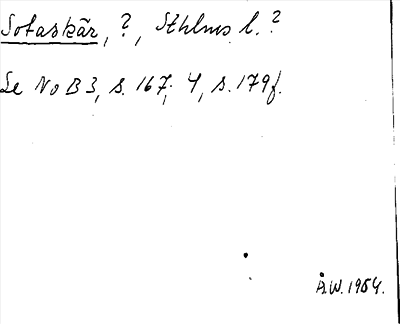 Sotaskär, ?, Sthlms l. ?
Se NoB 3, s. 167; 4, s. 179f.
Å.W. 1954.